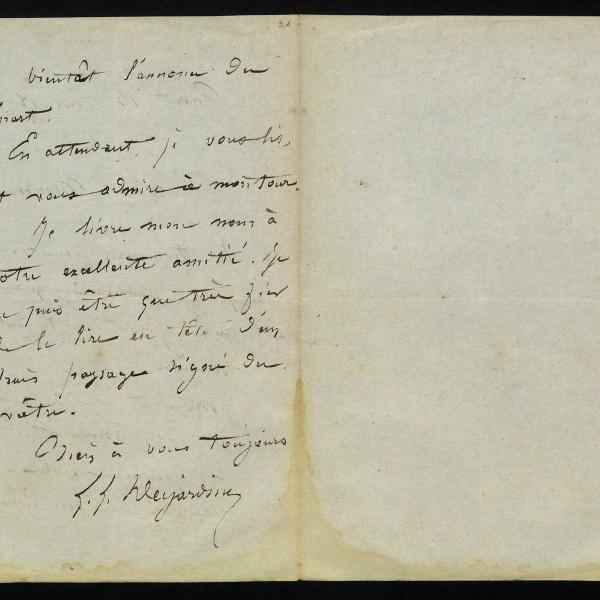 bientôt l'annonce du
En attendant je vous lis,
vous admire à mon tour.
Je livre mon nom à
otre excellente amitié. Je
e puis être que très fier
de le lire en tête d'un
frais paysage signé du
vôtre.
Bien à vous toujours
Desjardins